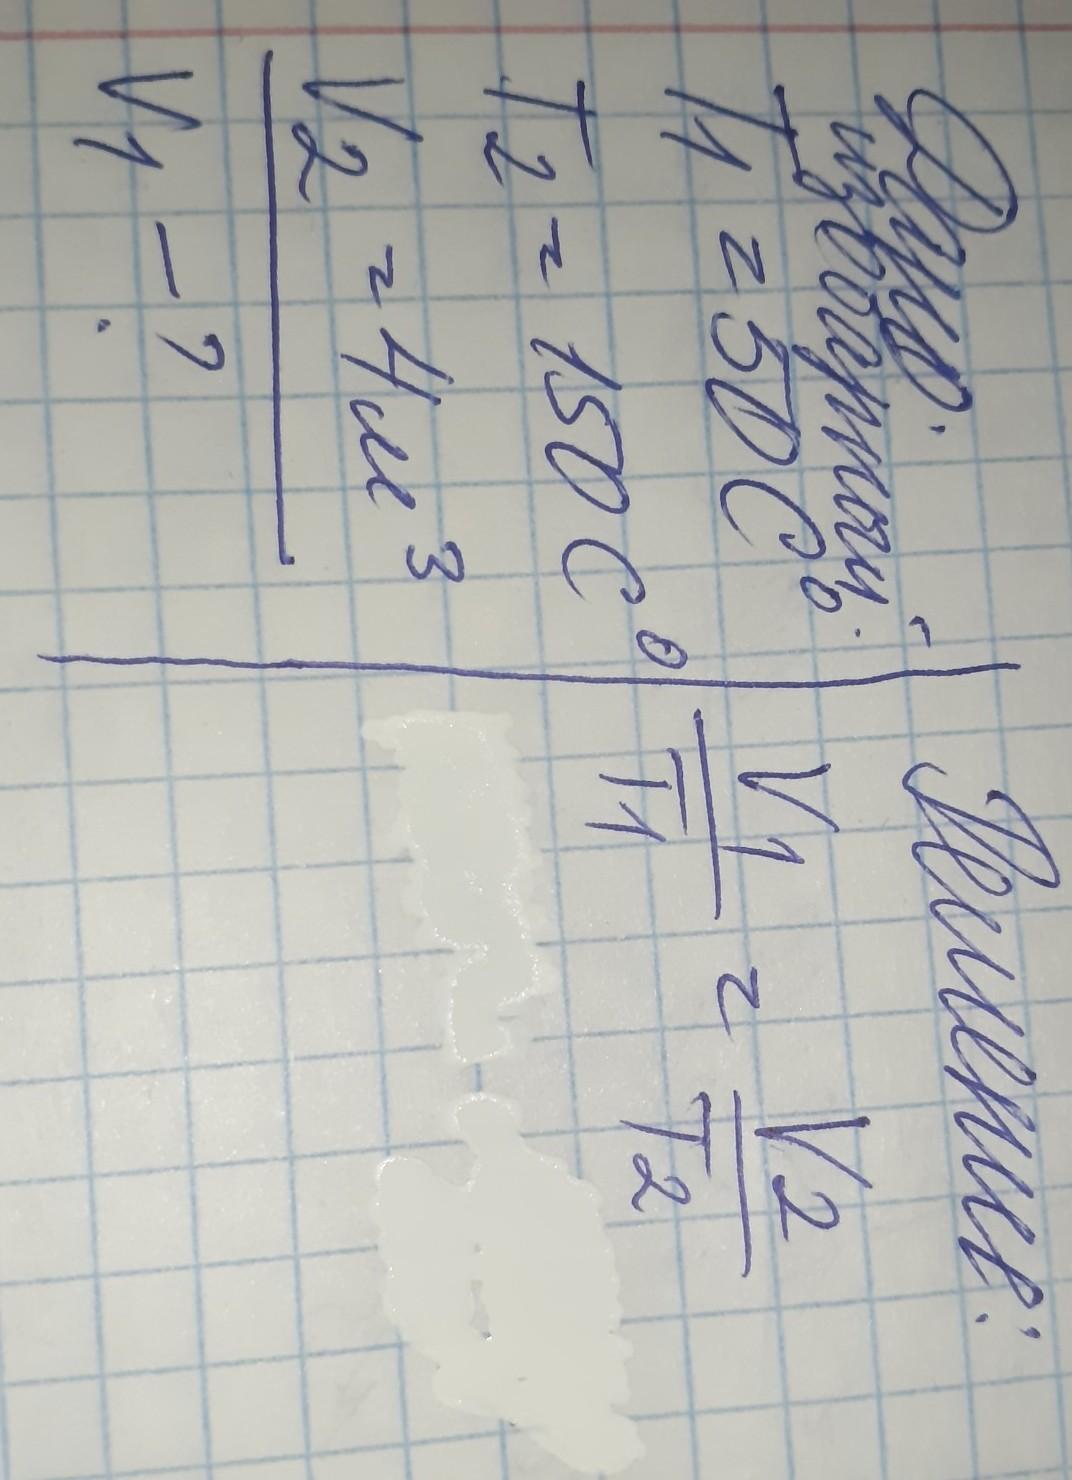 Дано:
изобарный.
T1 = 50 C°
T2 = 150 C°
V2 = 4 м³
V1 - ?
Решение:
V1 = V2
T1 T2